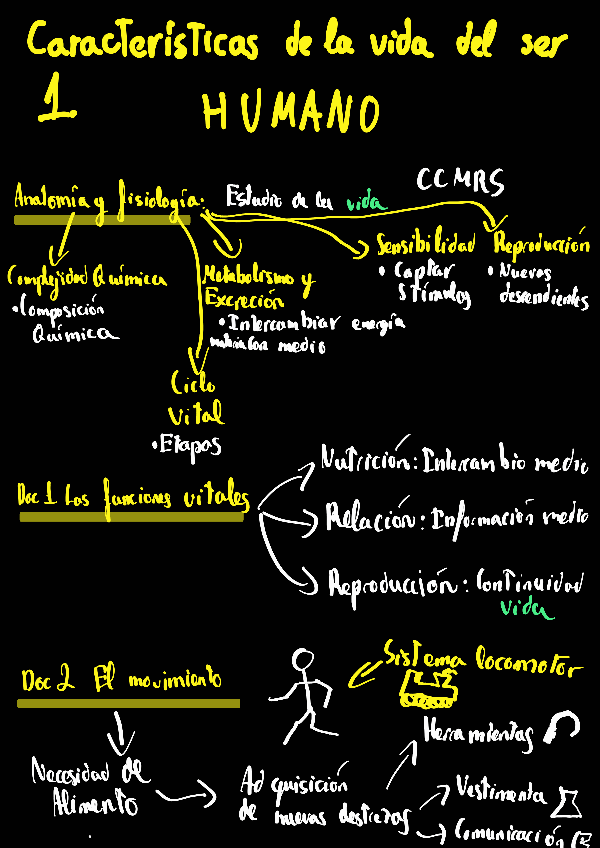 Características de la vida del ser
1 HUMANO
CCMRS
Anatomía y fisiología: Estudio de la vida
Complejidad Química
• Composición
Química
Metabolismo y
Excreción
• Intercambiar energía
medio
Sensibilidad
• Captar
Stímulos
Reproducción
• Nuevos
descendientes
Ciclo
Vital
• Etapas
Doc 1 Las funciones vitales
Nutrición: Intercambio medio
Relación: Información medio
Reproducción: Continuidad
vida
Doc 2 El movimiento
Sistema locomotor
Necesidad de
Alimento
Adquisición
de nuevas destrezas
Herramientas
Vestimenta
Comunicación